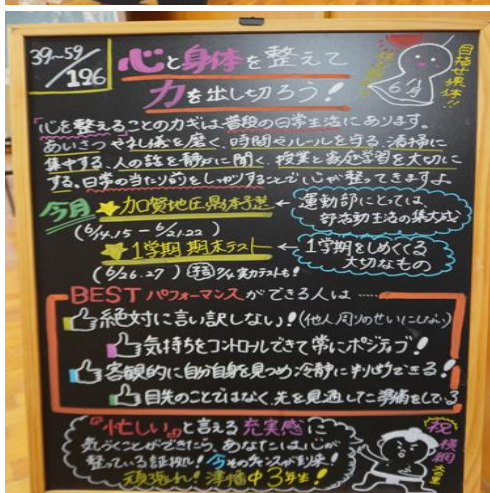 39~59/126
心と身体を整えて
力を出し切ろう！
6月
目指せ県体!!
「心を整える」ことのカギは普段の日常生活にあります。
あいさつや礼儀を磨く、時間やルールを守る、清掃に
集中する、人の話を静かに聞く、授業と家庭学習を大切に
する、日常の当たり前をしっかりすることで心が整ってきますよ
今月 ★加賀地区県体予選 ← 運動部にとっては、
部活動生活の集大成
(6/14.15－6/21.22)
★1学期期末テスト ← 1学期をしめくくる
大切なもの
(6/26.27) 7/4実力テストも！
BESTパフォーマンスができる人は……
絶対に言い訳しない！(他人周りのせいにしない)
気持ちをコントロールできて常にポジティブ！
客観的に自分自身を見つめ冷静に判断できる！
目先のことではなく、先を見通して準備をしている
『忙しい』と言える充実感に
気づくことができたら、あなたには心が
整っている証拠！今そのチャンスが到来！
頑張れ！津幡中3年生！
祝 横綱 大の里